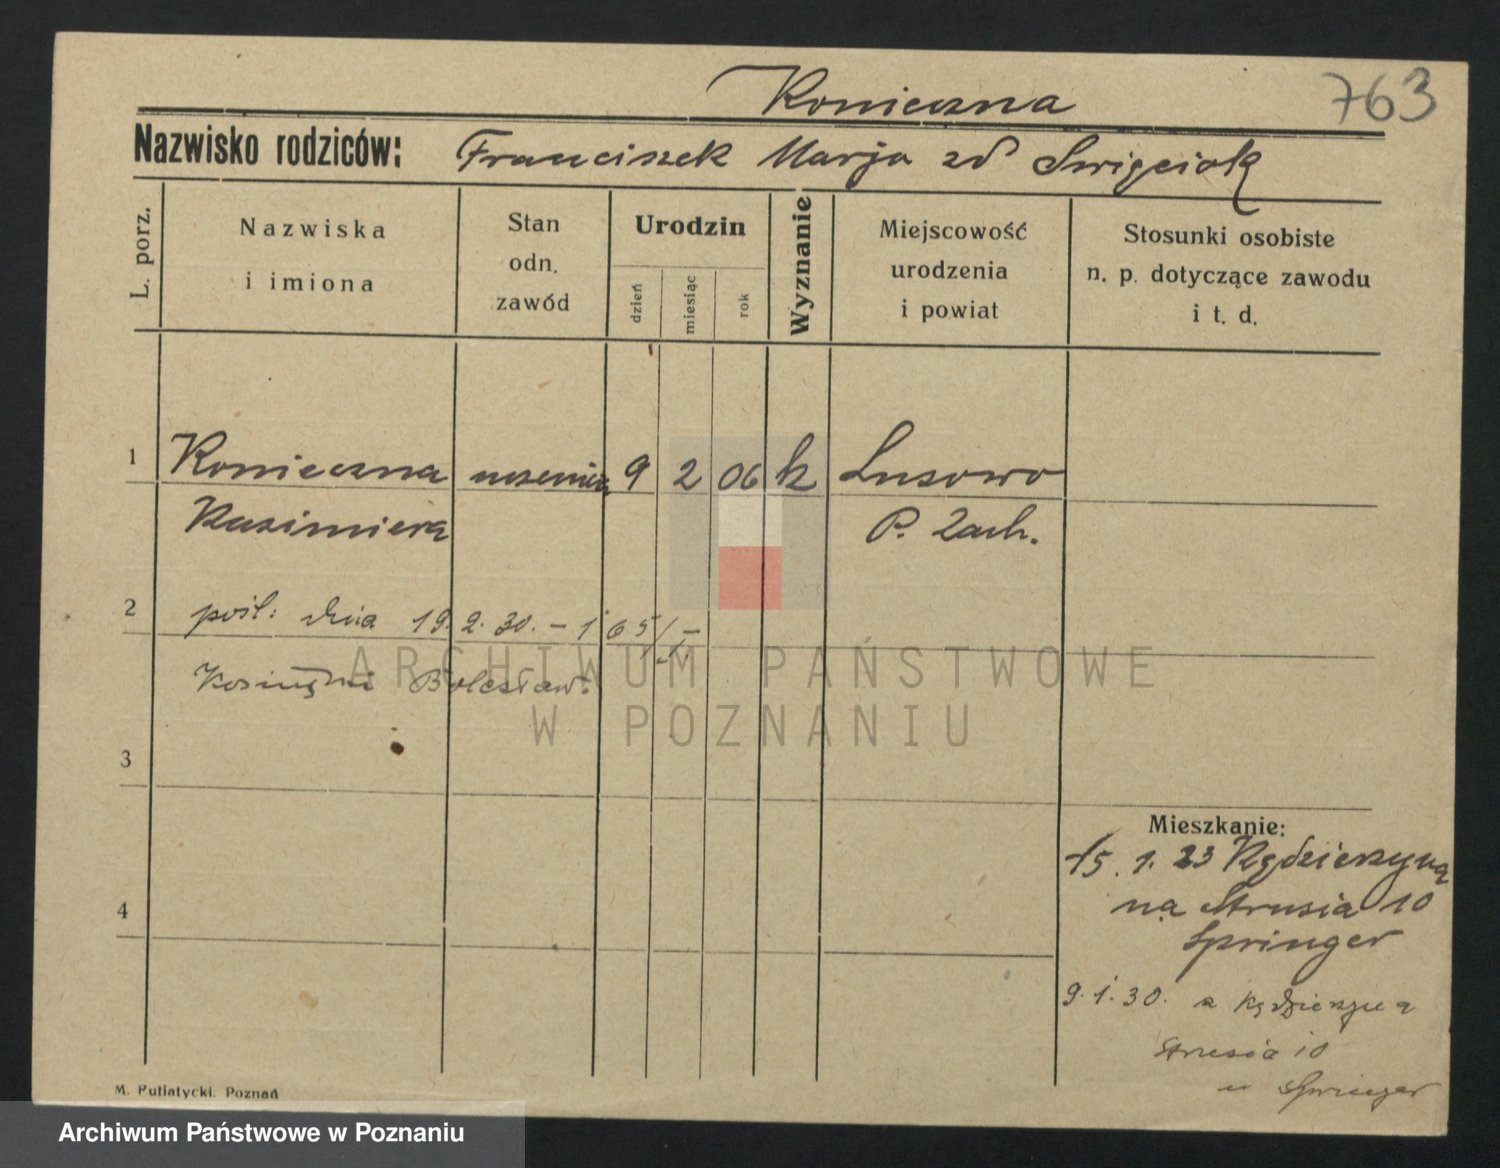 Konieczna 763
Nazwisko rodziców: Franciszek Marja zd Swięciok
L. porz.
Nazwiska
i imiona
Stan
odn.
zawód
Urodzin
dzień
miesiąc
rok
Wyznanie
Miejscowość
urodzenia
i powiat
Stosunki osobiste
n. p. dotyczące zawodu
i t. d.
1 Konieczna uczenica 9 2 06 k Lusowo
Kazimiera P. Zach.
2 pośl: dnia 19. 2. 30. – 165/
Bolesław.
ARCHIWUM PAŃSTWOWE
W POZNANIU
3
4
Mieszkanie:
15. 1. 23 Kędzierzyna
na Strusia 10
Springer
9. 1. 30. z Kędzierzyna
Strusia 10
u Springer
M. Putiatycki. Poznań
Archiwum Państwowe w Poznaniu